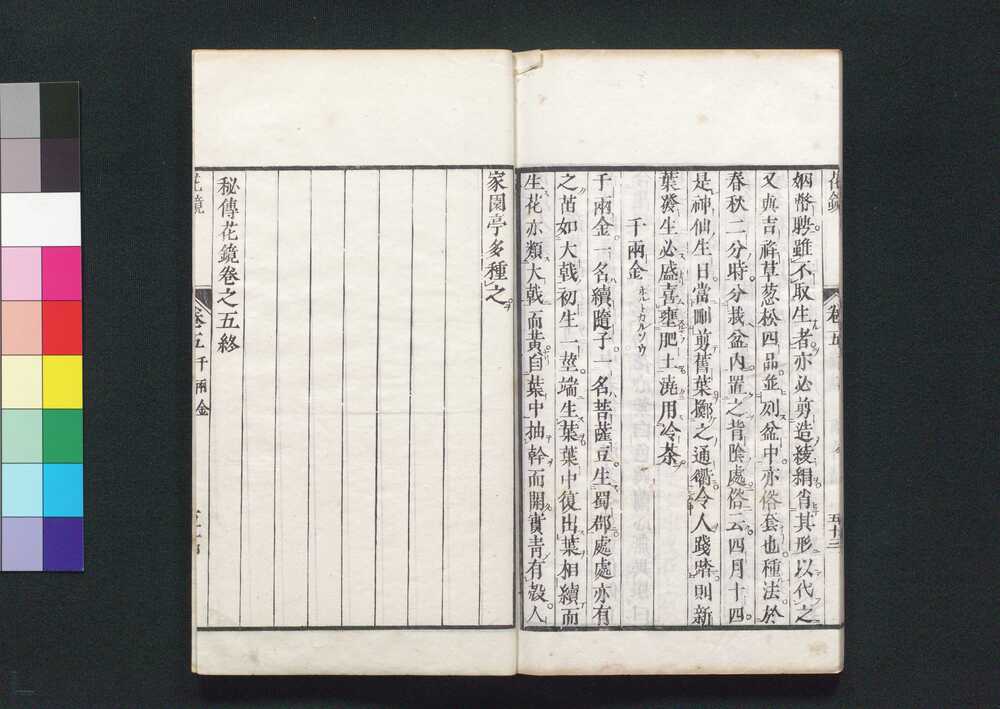 花鏡 卷五 五十三
姻幣聘雖不取生者亦必剪造綾絹肖其形以代之
又與吉祥草葱松四品並列盆中亦俗套也種法於
春秋二分時分栽盆内置之背陰處俗云四月十四
是神仙生日當刪剪舊葉擲之通衢令人踐踏則新
葉發生必盛喜壅肥土澆用冷茶
千兩金
千兩金一名續隨子一名菩薩豆生蜀郡處處亦有
之苗如大戟初生一莖端生葉葉中復出葉相續而
生花亦類大戟而黄自葉中抽幹而開實青有殼人
家園亭多種之
秘傳花鏡卷之五終
花鏡 卷五 千兩金